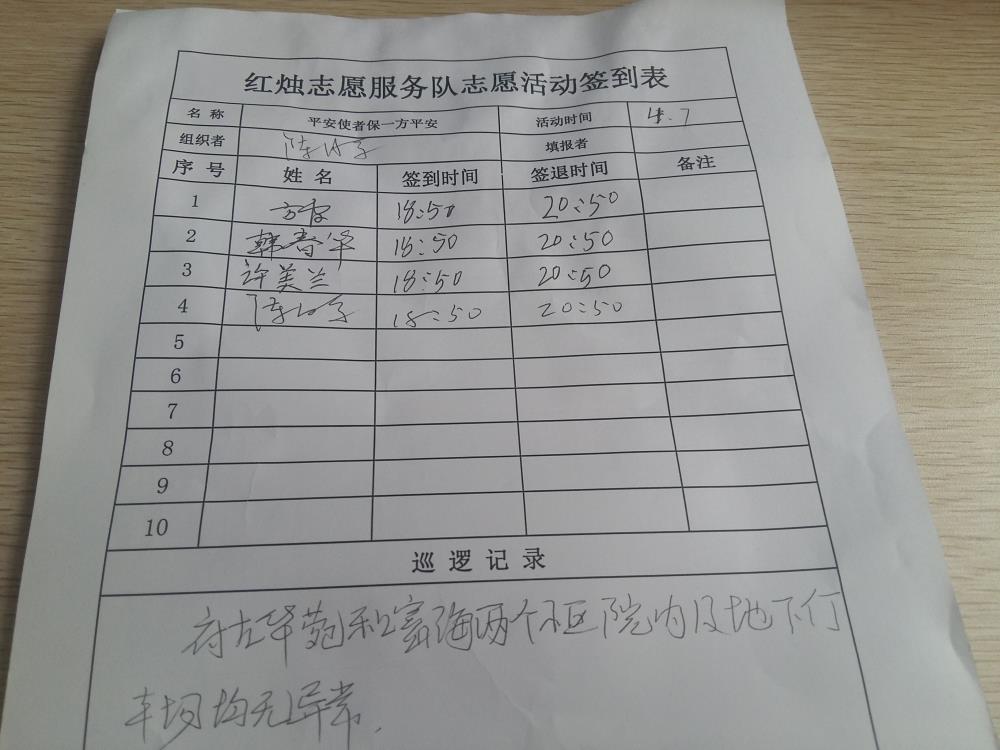 红烛志愿服务队志愿活动签到表
名称 平安使者保一方平安 活动时间 4.7
组织者 填报者
序号 姓名 签到时间 签退时间 备注
1 18:50 20:50
2 韩春华 18:50 20:50
3 许美兰 18:50 20:50
4 18:50 20:50
5
6
7
8
9
10
巡逻记录
府左华苑和富海两个小区院内及地下停
车场均无异常.